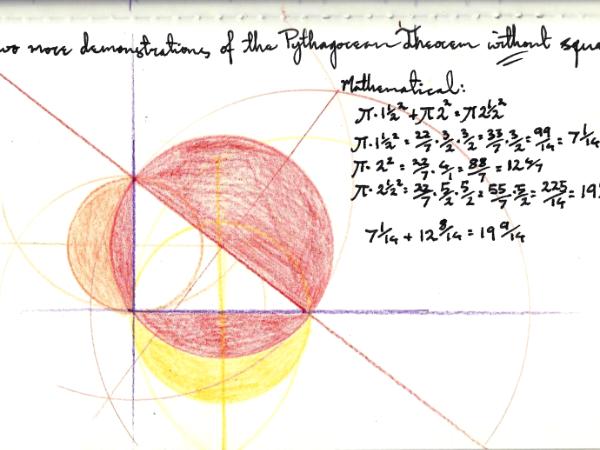 wo more demonstrations of the Pythagorean Theorem without squa
Mathematical:
π·1½² + π2² = π2½²
π·1½² = 22/7·3/2·3/2 = 33/7·3/2 = 99/14 = 7 1/14
π·2² = 22/7·4/1 = 88/7 = 12 4/7
π·2½² = 22/7·5/2·5/2 = 55/7·5/2 = 225/14 = 19
7 1/14 + 12 8/14 = 19 9/14